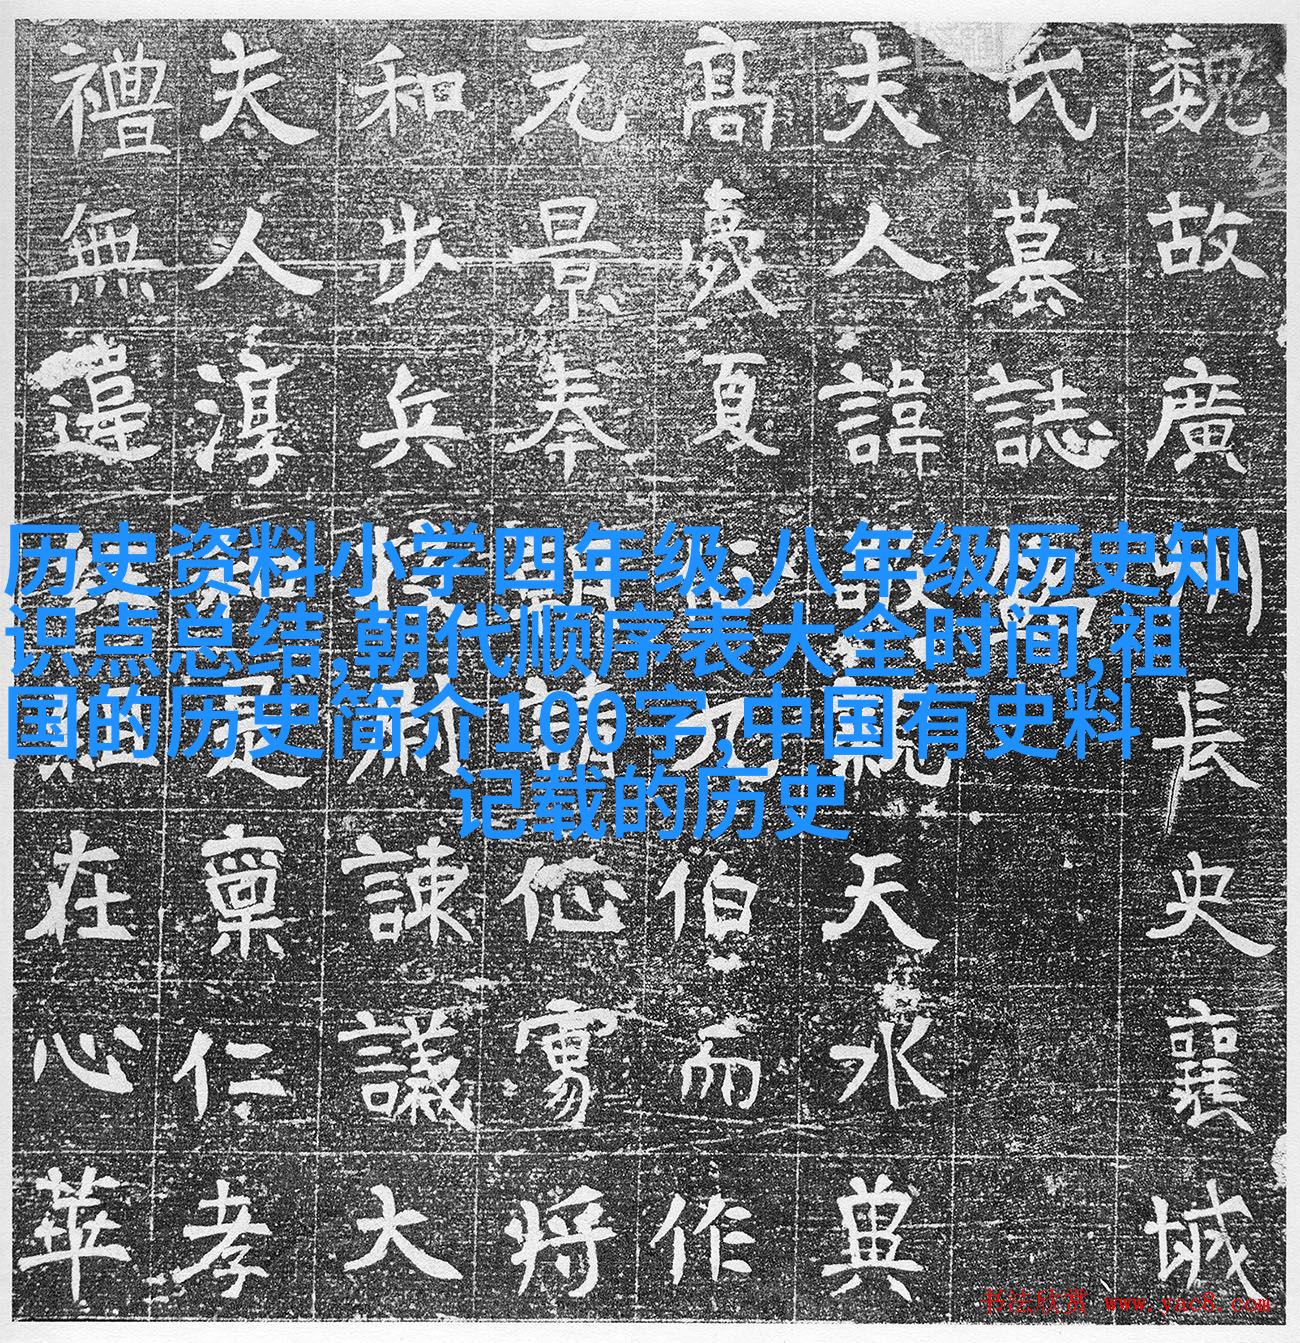 历史资料小学四年级,八年级历史知
识点总结,朝代顺序表大全时间,祖
国的历史简介100字,中国有史料
记载的历史
魏故廣長史襄城
氏墓誌
夫人諱天水典
高夏伯而作
元景奉請将
和步兵諫議大
夫人淳是稟仁孝
禮無違在心華
书法欣赏 www.yac8.com